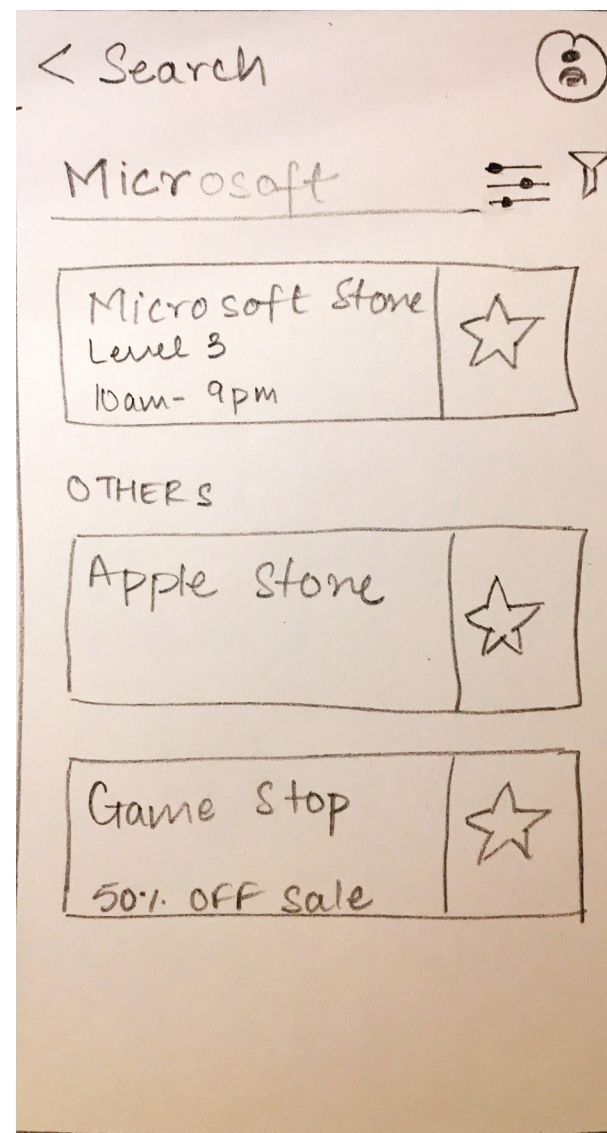 < Search
Microsoft
Microsoft Store
Level 3
10am - 9pm
OTHERS
Apple Store
Game Stop
50% OFF Sale